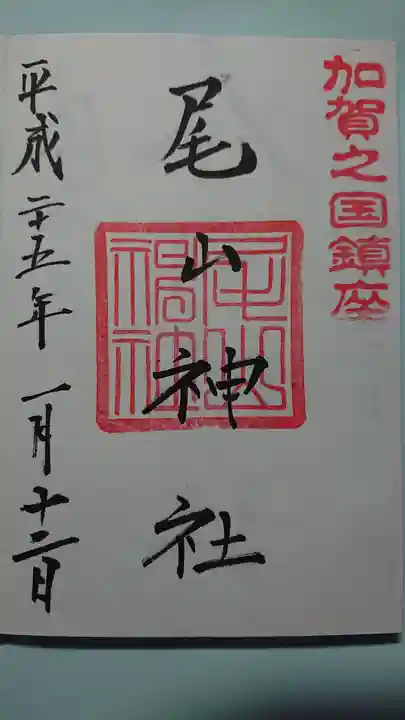 加賀之国鎮座
尾山神社
尾山神社
平成二十五年一月十二日